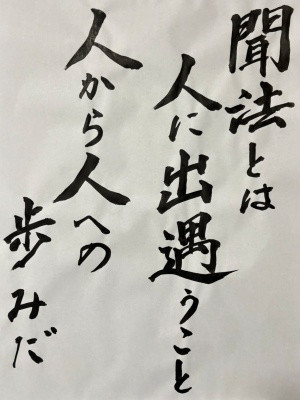 聞法とは
人に出遇うこと
人から人への
歩みだ